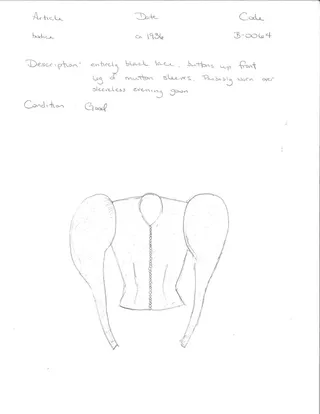 Article Date Code
bodice c. 1936 B-0064
Description: entirely black lace, buttons up front
leg o' mutton sleeves. Possibly worn over
sleeveless evening gown
Condition Good